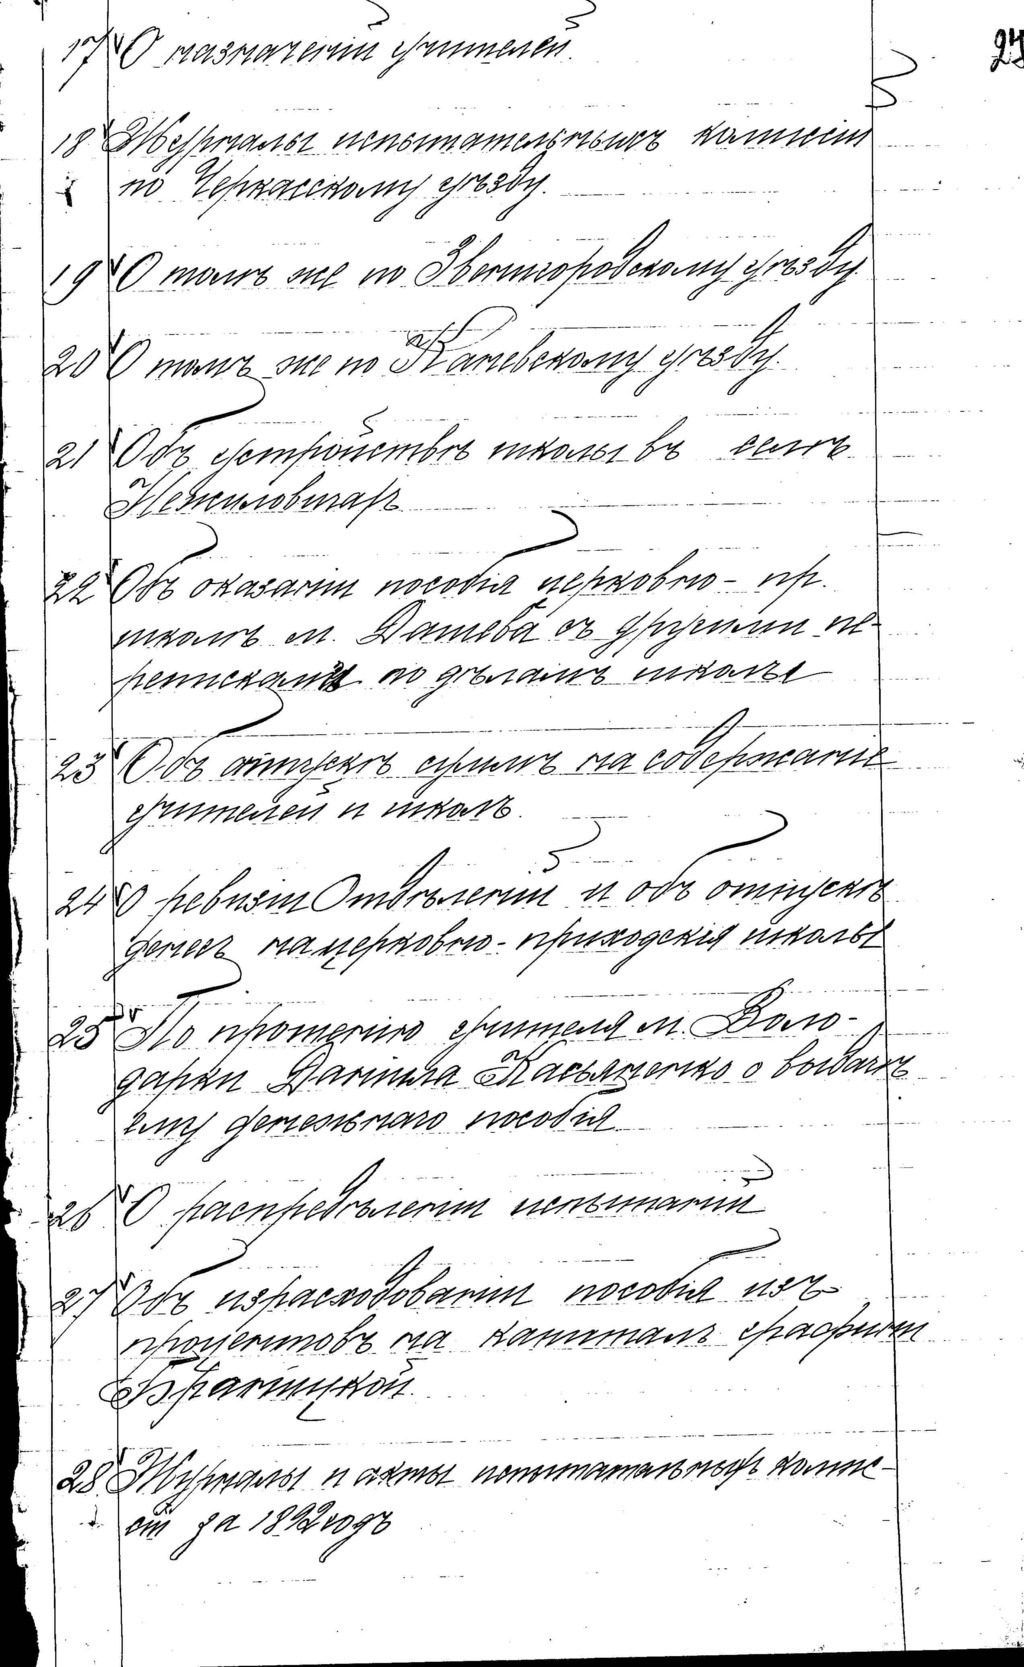 17 О назначеніи учителей.
18 Журналы испытательныхъ комиссій
по Черкасскому уѣзду.
19 О томъ же по Звенигородскому уѣзду
20 О томъ же по Каневскому уѣзду.
21 Объ устройствѣ школы въ селѣ
Нежиловичах
22 Объ оказаніи пособія церковно-пр.
школѣ м. Дашева съ другими пе-
реписками по дѣламъ школы
23 Объ отпускѣ суммъ на содержаніе
учителей и школъ.
24 О ревизіи Отдѣленій и объ отпускѣ
денегъ на церковно-приходскія школы
25 По прошенію учителя м. Воло-
дарки Даніила Касьяненко о выдачѣ
ему денежнаго пособія
26 О распредѣленіи испытаній
27 Объ израсходованіи пособія изъ
процентовъ на капиталъ графини
Браницкой.
28 Журналы и акты испытательных комис-
сій за 1892 годъ